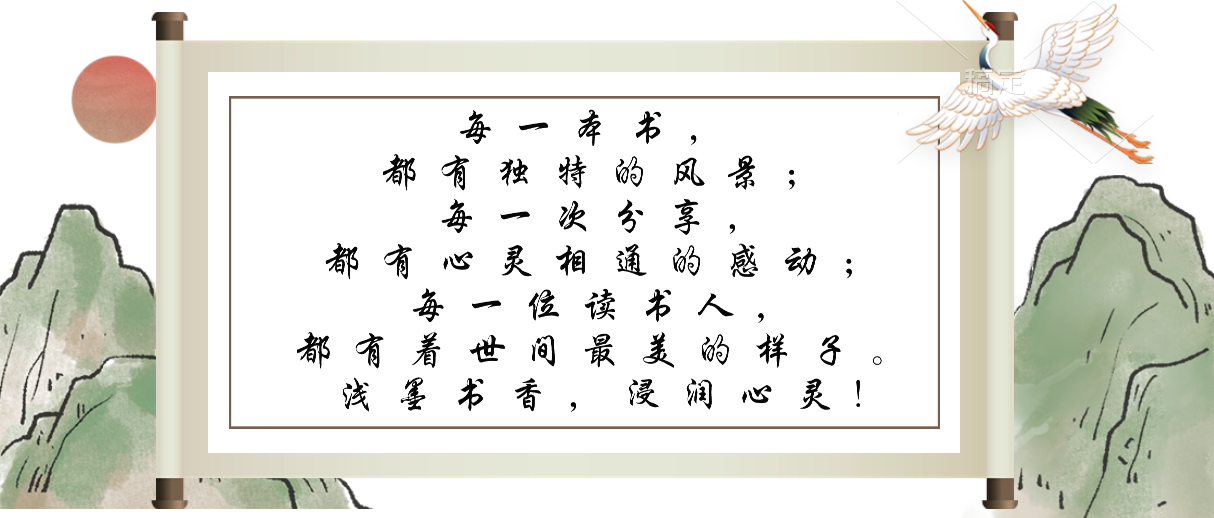 每一本书，
都有独特的风景；
每一次分享，
都有心灵相通的感动；
每一位读书人，
都有着世间最美的样子。
浅墨书香，浸润心灵！
稿定